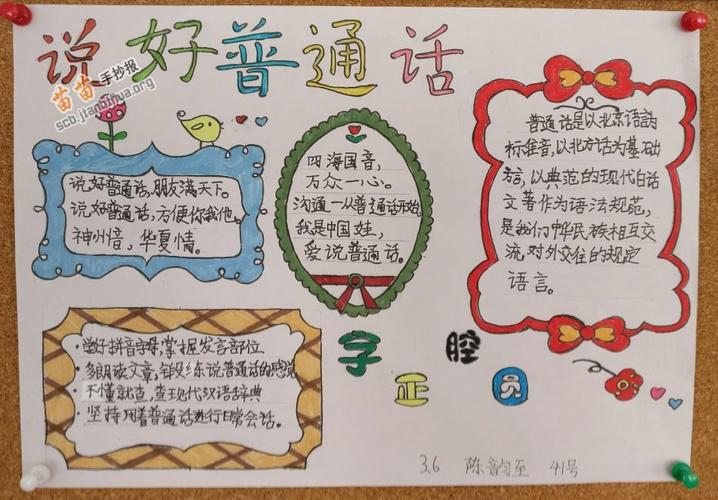 说好普通话
苗苗手抄报
scb.jianbihua.org
说好普通话,朋友满天下。
说好普通话,方便你我他。
神州音,华夏情。
四海国音,
万众一心。
沟通一从普通话开始
我是中国娃,
爱说普通话。
普通话是以北京语音为
标准音,以北方话为基础
方言,以典范的现代白话
文著作为语法规范,
是我们中华民族相互交
流,对外交往的规定
语言。
·学好拼音字母,掌握发言部位
·多朗读文章,锻炼说普通话的感觉
不懂就查,查现代汉语辞典
·坚持用着普通话进行日常会话。
字正腔员
3.6 陈韵至 41号